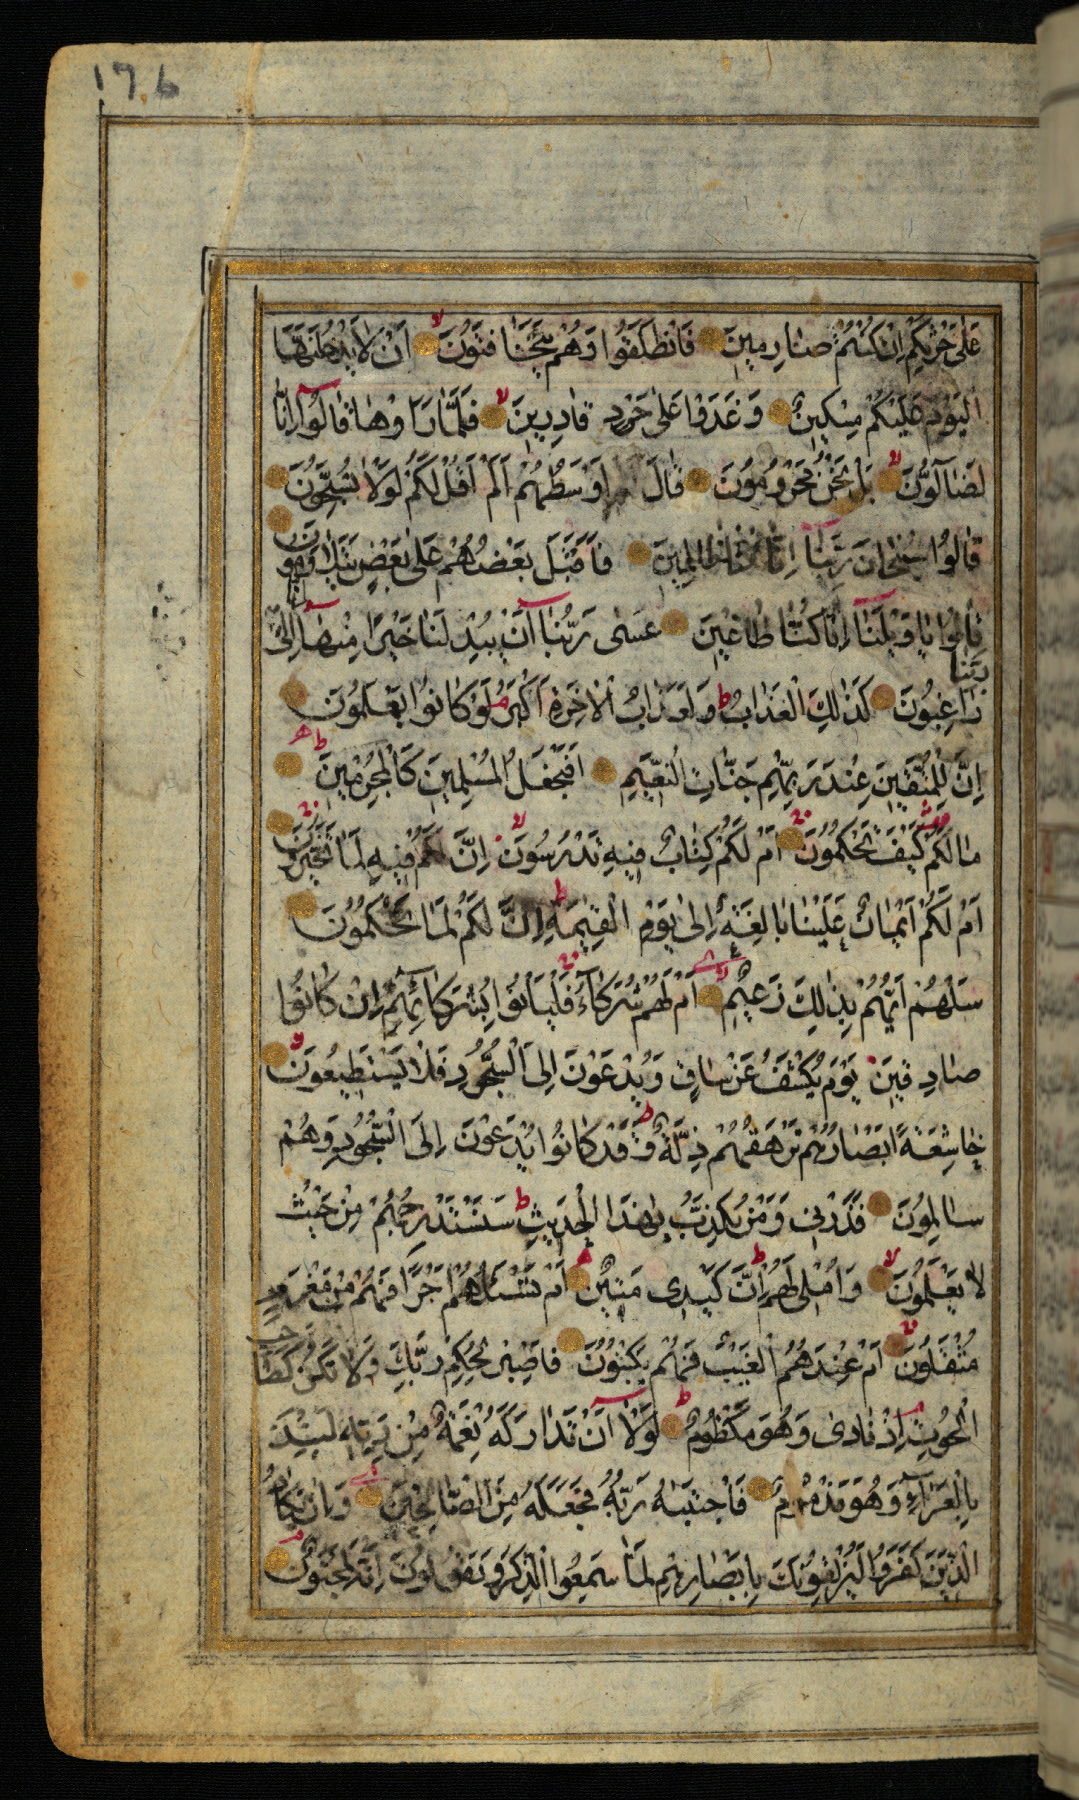 176
عَلٰى حَرْثِكُمْ اِنْ كُنْتُمْ صَارِمِينَ فَانْطَلَقُوا وَهُمْ يَتَخَافَتُونَ اَنْ لَا يَدْخُلَنَّهَا
الْيَوْمَ عَلَيْكُمْ مِسْكِينٌ وَغَدَوْا عَلٰى حَرْدٍ قَادِرِينَ فَلَمَّا رَاَوْهَا قَالُوا اِنَّا
لَضَالُّونَ بَلْ نَحْنُ مَحْرُومُونَ قَالَ اَوْسَطُهُمْ اَلَمْ اَقُلْ لَكُمْ لَوْلَا تُسَبِّحُونَ
قَالُوا سُبْحَانَ رَبِّنَا اِنَّا كُنَّا ظَالِمِينَ فَاَقْبَلَ بَعْضُهُمْ عَلٰى بَعْضٍ يَتَلَاوَمُونَ
قَالُوا يَا وَيْلَنَا اِنَّا كُنَّا طَاغِينَ عَسٰى رَبُّنَا اَنْ يُبْدِلَنَا خَيْرًا مِنْهَا اِنَّا اِلٰى رَبِّنَا
رَاغِبُونَ كَذٰلِكَ الْعَذَابُ وَلَعَذَابُ الْاٰخِرَةِ اَكْبَرُ لَوْ كَانُوا يَعْلَمُونَ
اِنَّ لِلْمُتَّقِينَ عِنْدَ رَبِّهِمْ جَنَّاتِ النَّعِيمِ اَفَنَجْعَلُ الْمُسْلِمِينَ كَالْمُجْرِمِينَ
مَا لَكُمْ كَيْفَ تَحْكُمُونَ اَمْ لَكُمْ كِتَابٌ فِيهِ تَدْرُسُونَ اِنَّ لَكُمْ فِيهِ لَمَا تَخَيَّرُونَ
اَمْ لَكُمْ اَيْمَانٌ عَلَيْنَا بَالِغَةٌ اِلٰى يَوْمِ الْقِيٰمَةِ اِنَّ لَكُمْ لَمَا تَحْكُمُونَ
سَلْهُمْ اَيُّهُمْ بِذٰلِكَ زَعِيمٌ اَمْ لَهُمْ شُرَكَاءُ فَلْيَأْتُوا بِشُرَكَائِهِمْ اِنْ كَانُوا
صَادِقِينَ يَوْمَ يُكْشَفُ عَنْ سَاقٍ وَيُدْعَوْنَ اِلَى السُّجُودِ فَلَا يَسْتَطِيعُونَ
خَاشِعَةً اَبْصَارُهُمْ تَرْهَقُهُمْ ذِلَّةٌ وَقَدْ كَانُوا يُدْعَوْنَ اِلَى السُّجُودِ وَهُمْ
سَالِمُونَ فَذَرْنِي وَمَنْ يُكَذِّبُ بِهٰذَا الْحَدِيثِ سَنَسْتَدْرِجُهُمْ مِنْ حَيْثُ
لَا يَعْلَمُونَ وَاُمْلِي لَهُمْ اِنَّ كَيْدِي مَتِينٌ اَمْ تَسْئَلُهُمْ اَجْرًا فَهُمْ مِنْ مَغْرَمٍ
مُثْقَلُونَ اَمْ عِنْدَهُمُ الْغَيْبُ فَهُمْ يَكْتُبُونَ فَاصْبِرْ لِحُكْمِ رَبِّكَ وَلَا تَكُنْ كَصَاحِبِ
الْحُوتِ اِذْ نَادٰى وَهُوَ مَكْظُومٌ لَوْلَا اَنْ تَدَارَكَهُ نِعْمَةٌ مِنْ رَبِّهِ لَنُبِذَ
بِالْعَرَاءِ وَهُوَ مَذْمُومٌ فَاجْتَبٰهُ رَبُّهُ فَجَعَلَهُ مِنَ الصَّالِحِينَ وَاِنْ يَكَادُ
الَّذِينَ كَفَرُوا لَيُزْلِقُونَكَ بِاَبْصَارِهِمْ لَمَّا سَمِعُوا الذِّكْرَ وَيَقُولُونَ اِنَّهُ لَمَجْنُونٌ